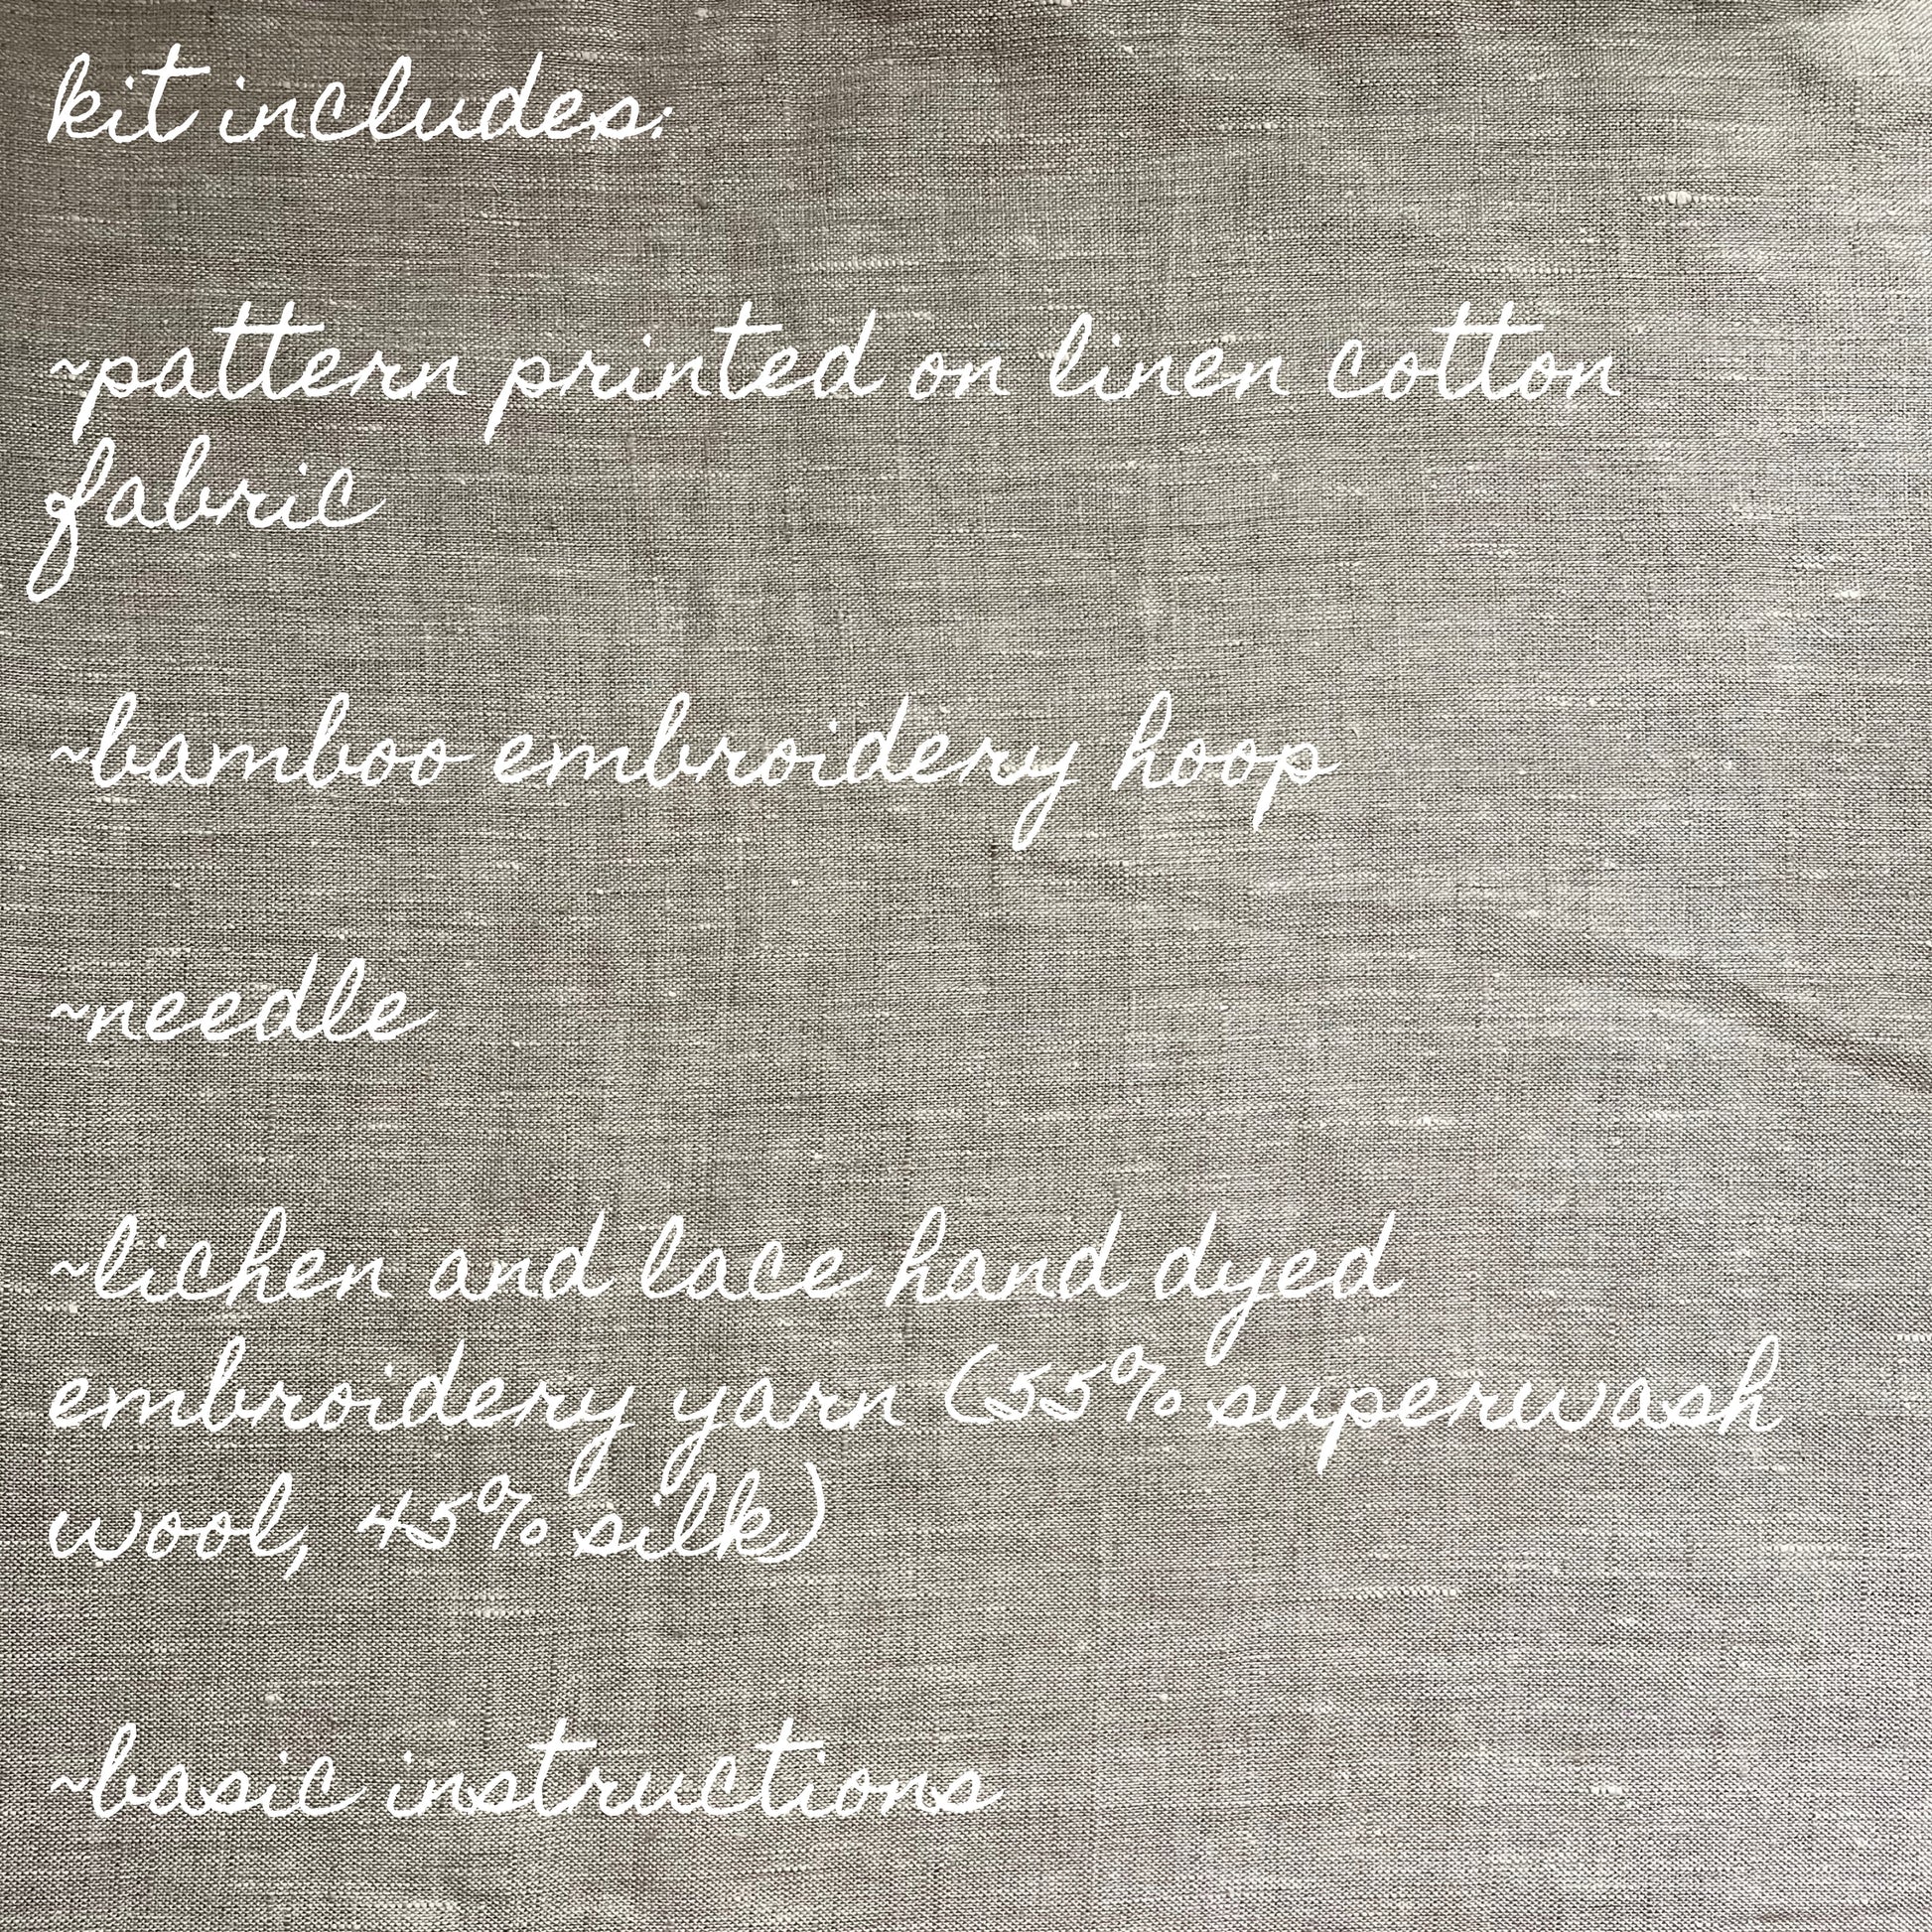 kit includes:
~pattern printed on linen cotton
fabric
~bamboo embroidery hoop
~needle
~lichen and lace hand dyed
embroidery yarn (55% superwash
wool, 45% silk)
~basic instructions